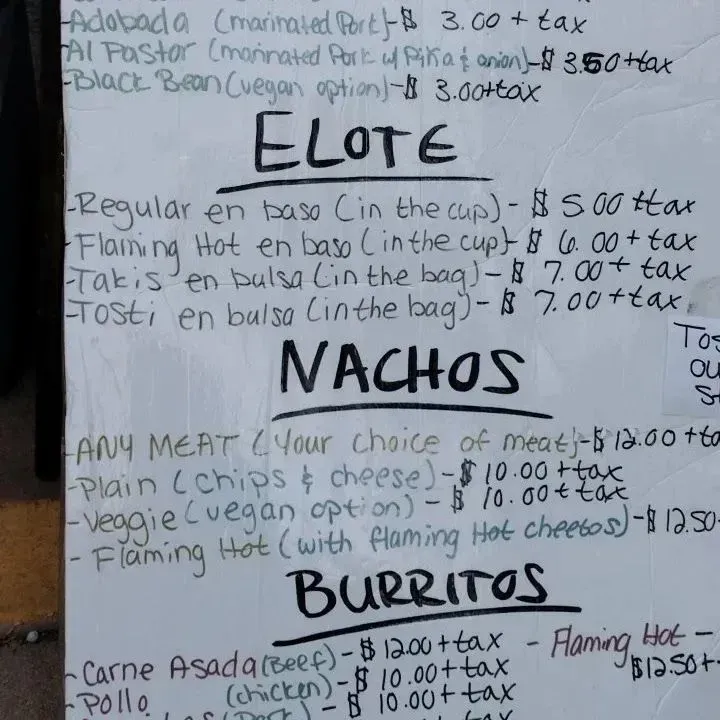 -Adobada (marinated Pork)-$ 3.00 + tax
-Al Pastor (marinated Pork w/ Piña & onion)-$ 3.50+tax
-Black Bean (vegan option)-$ 3.00+tax
ELOTE
-Regular en baso (in the cup) - $ 5.00 +tax
-Flaming Hot en baso (in the cup)- $ 6.00 + tax
-Takis en bulsa (in the bag) - $ 7.00 + tax
-Tosti en bulsa (in the bag) - $ 7.00 + tax
Tos
ou
S
NACHOS
-ANY MEAT (Your choice of meat)-$ 12.00 + ta
-Plain (chips & cheese) - $ 10.00 + tax
-Veggie (vegan option) - $ 10.00 + tax
- Flaming Hot (with flaming Hot cheetos) -$ 12.50
BURRITOS
- Carne Asada (Beef) - $ 12.00 + tax
- Flaming Hot -
$12.50+
- Pollo (chicken) - $ 10.00 + tax
- $ 10.00 + tax